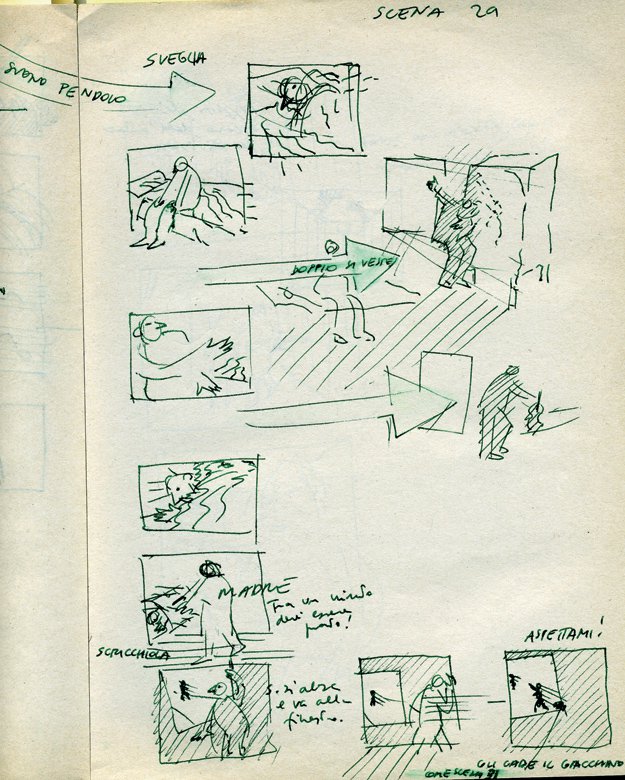 SCENA 29
SVEGLIA
SUONO PENDOLO
DOPPIO SI VESTE
MADRE
Tra un minuto
devi essere
pronto!
SCRICCHIOLA
S. si alza
e va alla
finestra.
ASPETTAMI!
GLI CADE IL GIACCHINO
COME SCENA